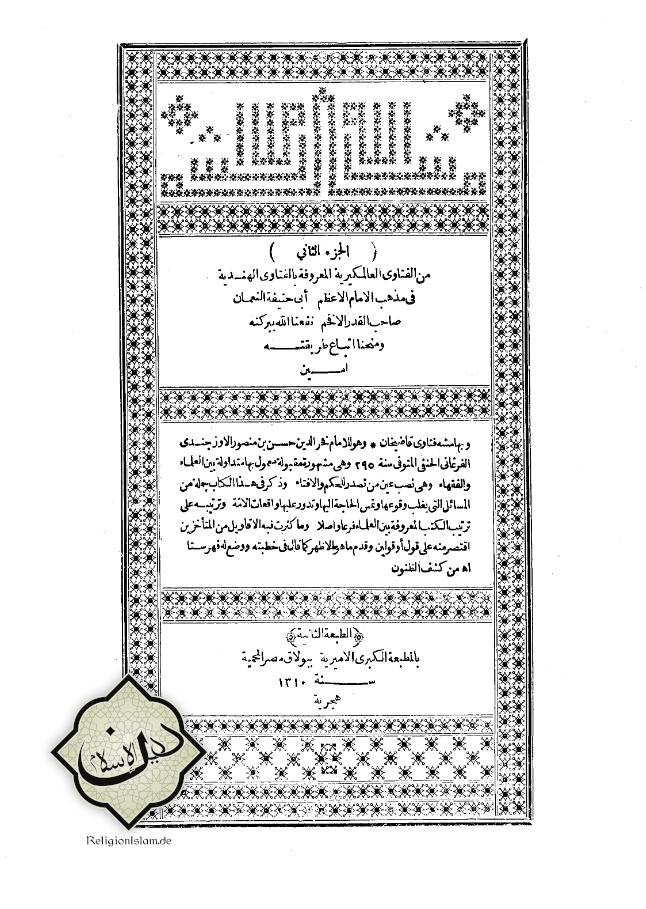 بسم الله الرحمن الرحيم
( الجزء الثاني )
من الفتاوى العالمكيرية المعروفة بالفتاوى الهندية
فى مذهب الامام الاعظم أبى حنيفة النعمان
صاحب القدر الافخم نفعنا الله ببركته
ومنحنا اتباع طريقتـــــه
امـــــين
وبهامشه فتاوى قاضيخان * وهو للامام فخر الدين حسن بن منصور الاوزجندى
الفرغانى الحنفى المتوفى سنة ٢٩٥ وهى مشهورة مقبولة معمول بها متداولة بين العلماء
والفقهاء وهى نصب عين من تصدر للحكم والافتاء وذكر فى هذا الكتاب جملة من
المسائل التى يغلب وقوعها وتمس الحاجة اليها وتدور عليها واقعات الامة وترتيبه على
ترتيب الكتب المعروفة بين العلماء فرعا وأصلا وما كثرت فيه الاقاويل من المتأخرين
اقتصر منه على قول أو قولين وقدم ما هو الاظهر كما قال فى خطبته ووضع له فهرستا
اه من كشف الظنون
﴿الطبعة الثانية﴾
بالمطبعة الكبرى الاميرية ببولاق مصر المحمية
ســـــنة ١٣١٠
هجرية
دين الإسلام
ReligionIslam.de